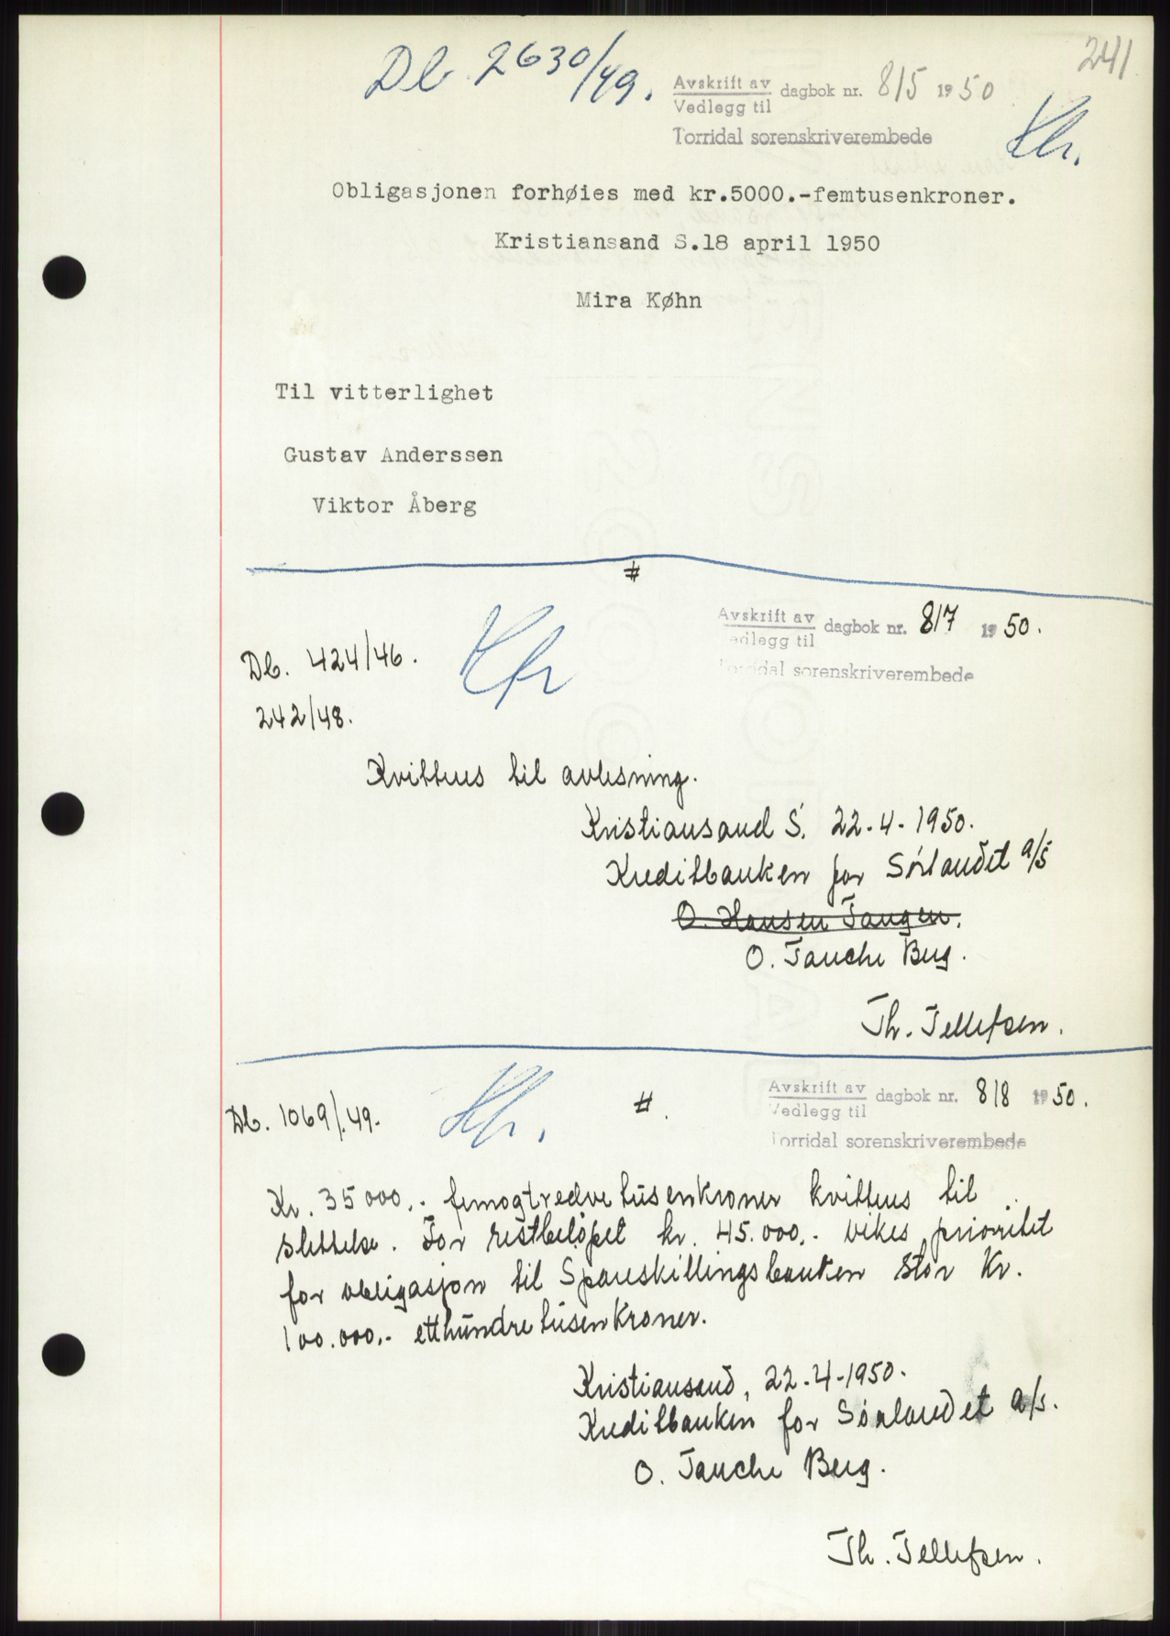 241
Db. 2630/49.
Avskrift av
Vedlegg til dagbok nr. 815 1950
Torridal sorenskriverembede
Kr.
Obligasjonen forhøies med kr.5000.-femtusenkroner.
Kristiansand S.18 april 1950
Mira Køhn
Til vitterlighet
Gustav Anderssen
Viktor Åberg
#
Avskrift av
Vedlegg til dagbok nr. 817 1950.
Torridal sorenskriverembede
Db. 424/46.
242/48.
Kr
Kvitteres til avlesning.
Kristiansand S. 22-4-1950.
Kreditbanken for Sørlandet a/s
O. Hansen Tangen.
O. Tauche Berg.
Th. Tellefsen.
#.
Avskrift av
Vedlegg til dagbok nr. 818 1950.
Torridal sorenskriverembede
Db. 1069/.49.
Kr.
Kr. 35000.- femogtredvetusenkroner kvitteres til
slettelse. For restbeløpet kr. 45.000.- vikes prioritet
for obligasjon til Spareskillingsbanken stor Kr.
100.000.- etthundretusenkroner.
Kristiansand, 22-4-1950.
Kreditbanken for Sørlandet a/s.
O. Tauche Berg.
Th. Tellefsen.